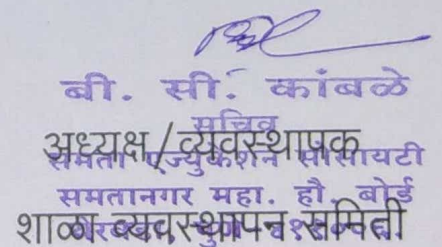 बी. सी. कांबळे
सचिव
अध्यक्ष/व्यवस्थापक
समता एज्युकेशन सोसायटी
समतानगर महा. हौ. बोर्ड
शाळा व्यवस्थापन समिती